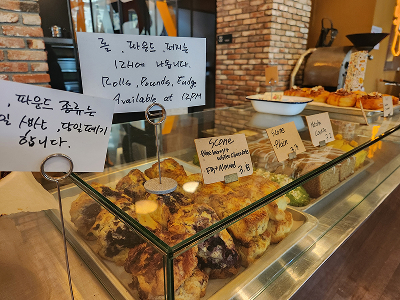 롤, 파운드, 퍼지는
12시에 나옵니다.
Rolls, Pounds, Fudge
Available at 12PM
, 파운드 종류는
일 생산, 당일폐기
합니다.
SCONE
Blueberry
white chocolate
Fig + Almond
3.8
SCONE
Plain